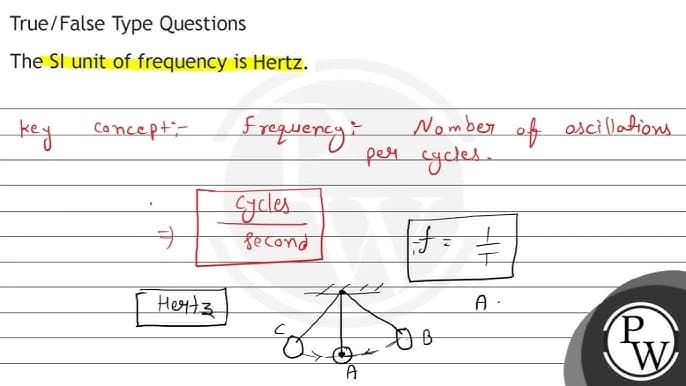 True/False Type Questions
The SI unit of frequency is Hertz.
Key concept:- Frequency:- Nomber of oscillations
per cycles.
⇒ cycles
second
f = 1
T
Hertz
A.
C
B
A
PW
PW